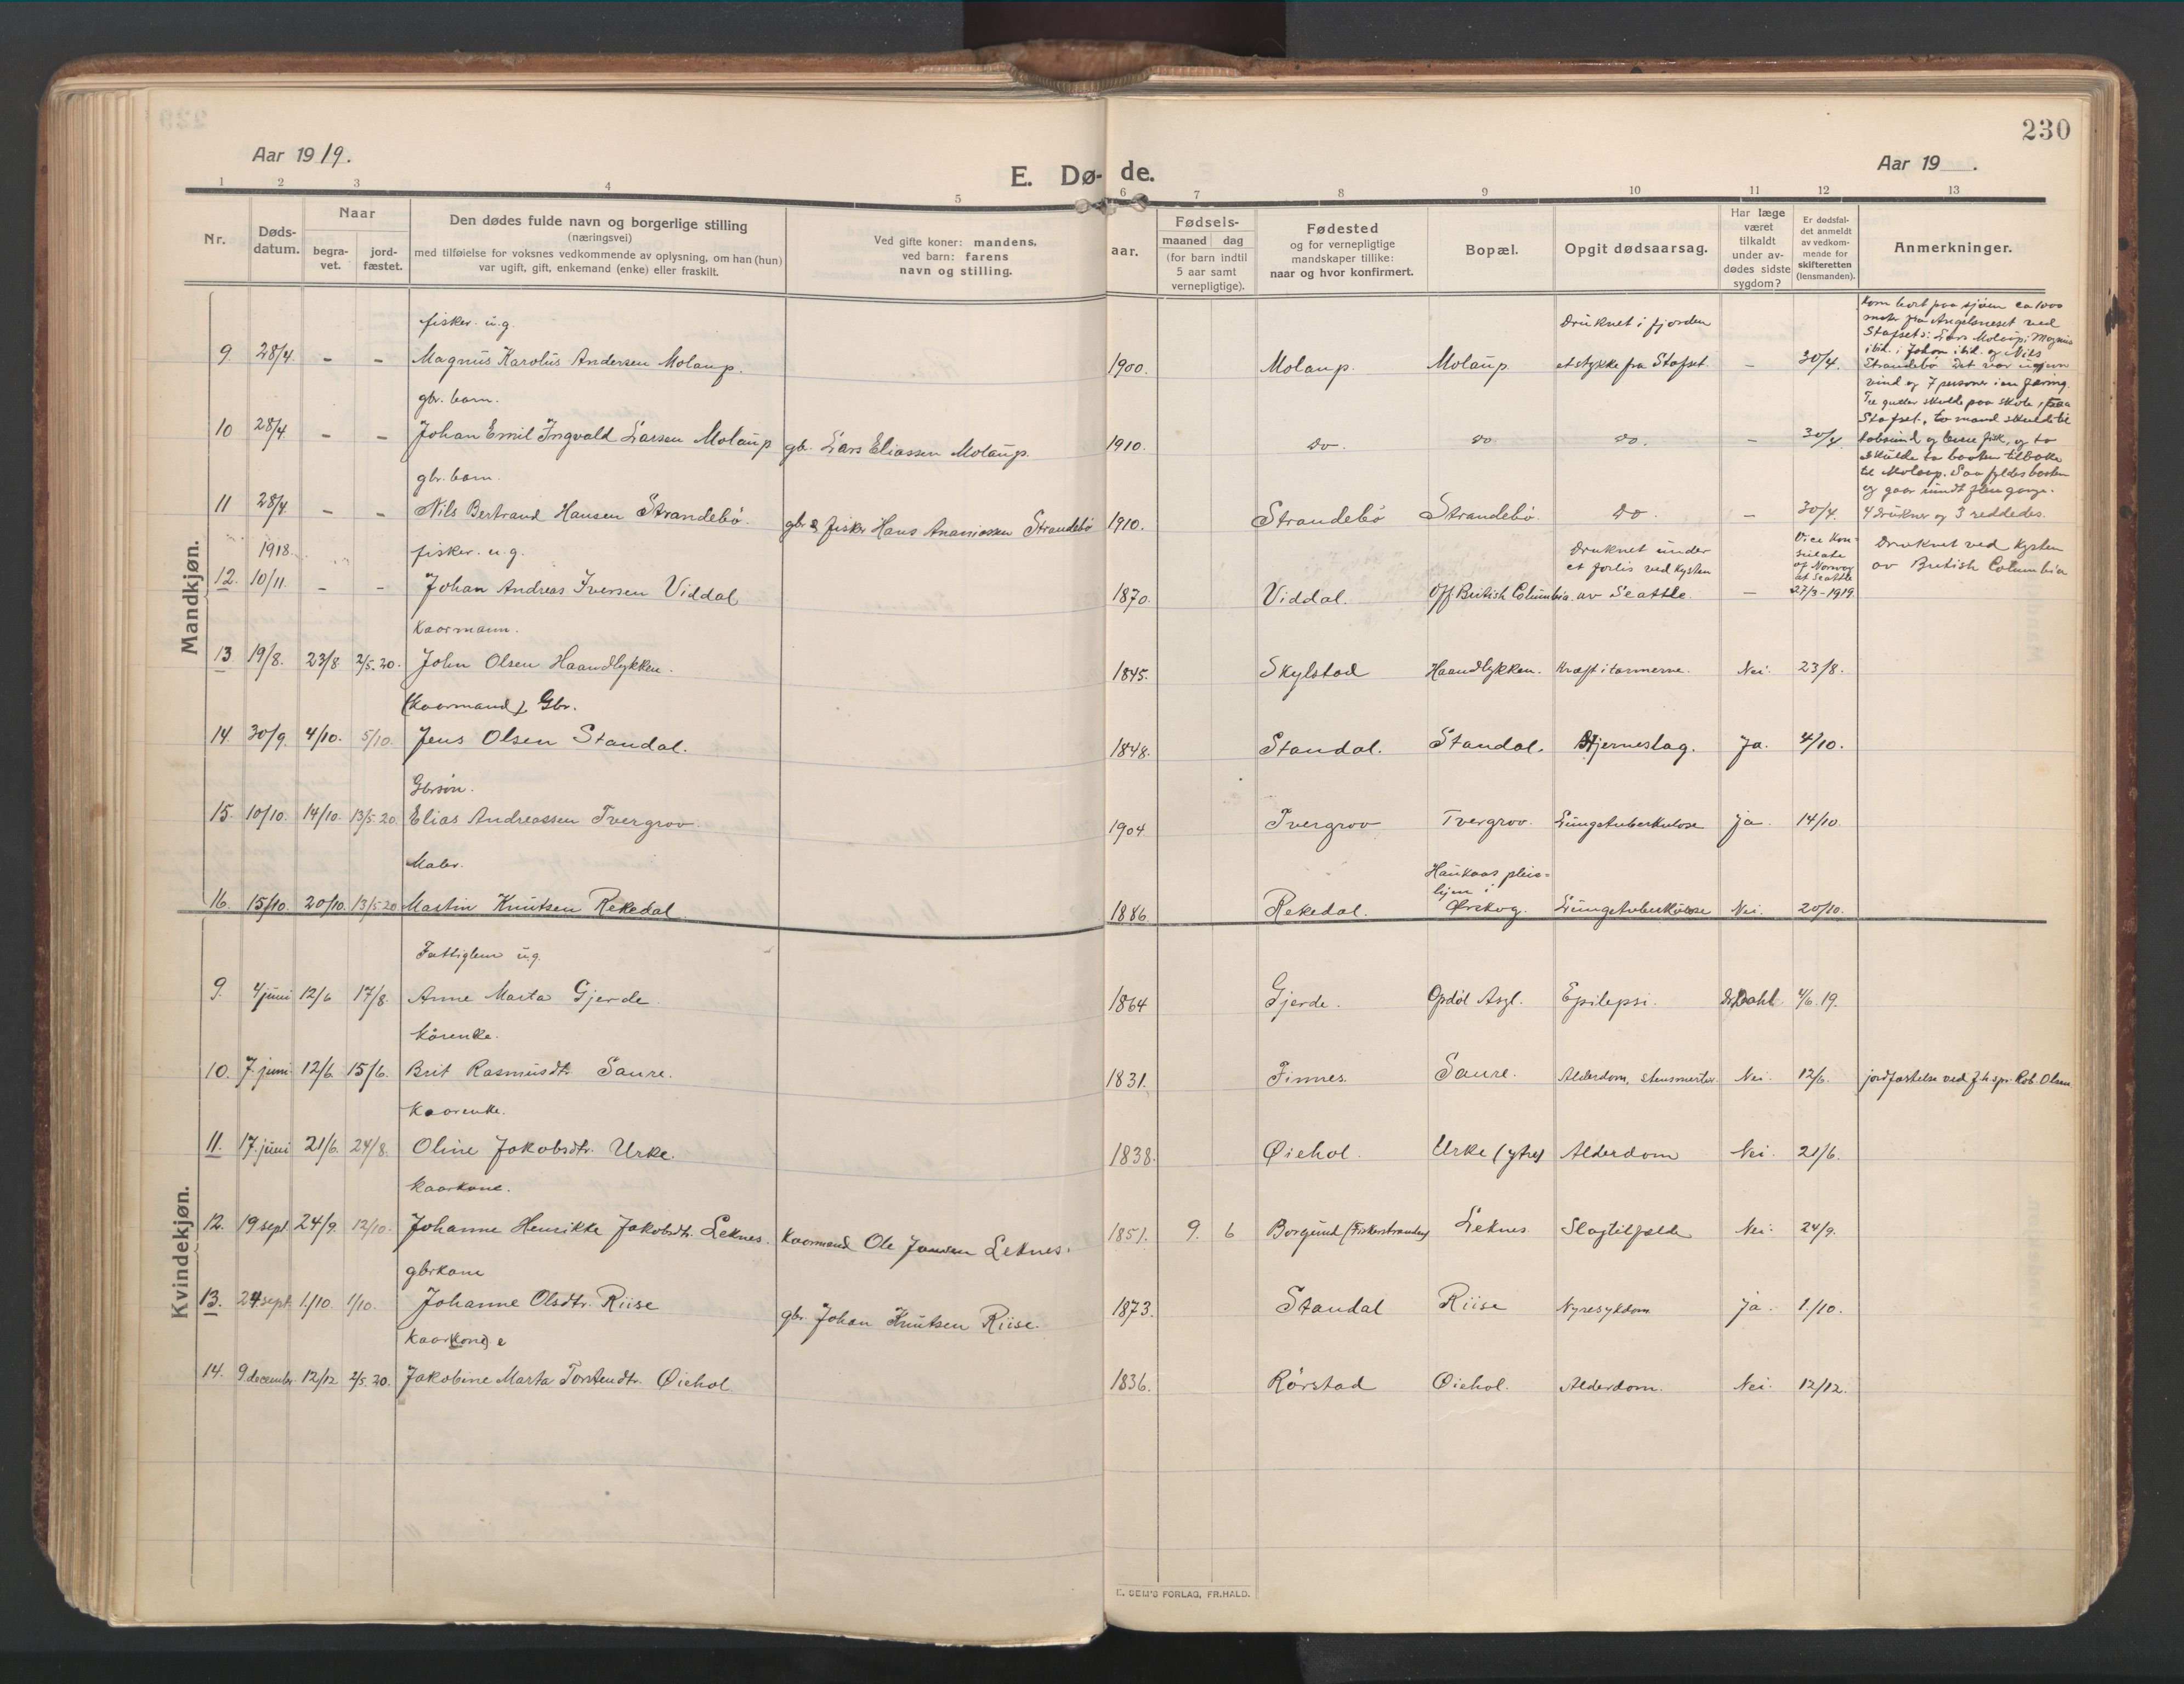 230
Aar 1919.
Aar 19 .
E. Dø- de.
1 2 3 4 5 6 7 8 9 10 11 12 13
Nr.
Døds-
datum.
Naar
begra-
vet.
jord-
fæstet.
Den dødes fulde navn og borgerlige stilling
(næringsvei)
med tilføielse for voksnes vedkommende av oplysning, om han (hun)
var ugift, gift, enkemand (enke) eller fraskilt.
Ved gifte koner: mandens,
ved barn: farens
navn og stilling.
Fødsels-
aar.
maaned dag
(for barn indtil
5 aar samt
vernepligtige).
Fødested
og for vernepligtige
mandskaper tillike:
naar og hvor konfirmert.
Bopæl.
Opgit dødsaarsag.
Har læge
været
tilkaldt
under av-
dødes sidste
sygdom?
Er dødsfal-
det anmeldt
av vedkom-
mende for
skifteretten
(lensmanden).
Anmerkninger.
Mandkjøn.
fisker. u.g. Druknet i fjorden
9. 28/4. - - Magnus Karolus Andersen Molaup. 1900. Molaup. Molaup et stykke fra Stafset. - 30/4.
gbr. barn.
10 28/4. - - Johan Emil Ingvald Larsen Molaup gb. Lars Eliassen Molaup. 1910. do. do do. - 30/4.
gbr. barn.
11 28/4. - - Nils Bertrand Hansen Strandebö. gbr & fisker Hans Ananiassen Strandebö 1910. Strandebö Strandebö. do. - 30/4.
Kom bort paa sjöen ca 1000
meter fra Angelsneset ved
Stafset: Lars Molaup, Magnus
ibid., Johan ibid. og Nils
Strandebö Det var ujevn
vind og 7 personer i en færing.
Tre gutter skulde paa skole paa
Stafset, to mand skulde til
sund og levere fisk, og to
skulde ta baaten tilbake
til Molaup. Saa fyldes baaten
og gaar rundt flere gange.
4 drukner og 3 reddedes.
1918. fisker. u.g. Druknet under
et forlis ved Kysten
Vice Kon-
sulate
of Norway
at Seattle
27/3-1919.
Druknet ved Kysten
av British Columbia
12. 10/11. - - Johan Andreas Iversen Viddal 1870. Viddal. Off British Columbia. av Seattle. -
Kaarmann.
13 19/8. 23/8 2/5.20. John Olsen Haandlykken. 1845. Skylstad Haandlykken. Kræft i tarmerne. Nei. 23/8.
(Kaarmand) Gbr.
14. 30/9. 4/10. 5/10. Jens Olsen Standal. 1848. Standal. Standal. Hjerneslag. Ja. 4/10.
Gbrsön.
15. 10/10. 14/10. 13/5.20. Elias Andreassen Tvergrov. 1904 Tvergrov Tvergrov. Lungetuberkulose ja. 14/10.
Maler. Haukaas pleie-
hjem i
16. 15/10. 20/10. 13/5 20 Martin Knutsen Rekedal 1886. Rekedal. Ørskog. Lungetuberkulose Nei. 20/10.
Kvindekjøn.
Fattiglem u.g.
9. 4 juni 12/6 17/8. Anne Marta Gjerde 1864 Gjerde. Opdöl Asyl. Epilepsi. Dr. Dahl. 4/6.19.
Kårenke.
10. 7. juni 12/6 15/6. Brit Rasmusdtr Saure. 1831. Finnes. Saure. Alderdom, stensmerter Nei. 12/6. jordfæstelse ved Rob. Olsen
Kaarenke.
11. 17. juni 21/6. 24/8. Oline Jakobsdtr. Urke. 1838. Øiehol. Urke (ytre) Alderdom Nei. 21/6.
Kaarkone.
12. 19 sept 24/9. 12/10. Johanne Henrikke Jakobsdtr. Leknes. Kaarmand Ole Jansen Leknes. 1851. 9. 6 Borgund (Fiskerstranden) Leknes Slagtilfælde Nei. 24/9.
gbrkone
13. 24 sept. 1./10. 1/10. Johanne Olsdtr. Riise gbr. Johan Knutsen Riise. 1873. Standal Riise Nyresykdom ja. 1./10.
Kaar(kone) e
14. 9 december. 12/12 2/5.20. Jakobine Marta Torstendtr. Øiehol 1836. Rörstad Øiehol. Alderdom. Nei. 12/12.
E. SEM'S FORLAG, FR.HALD.